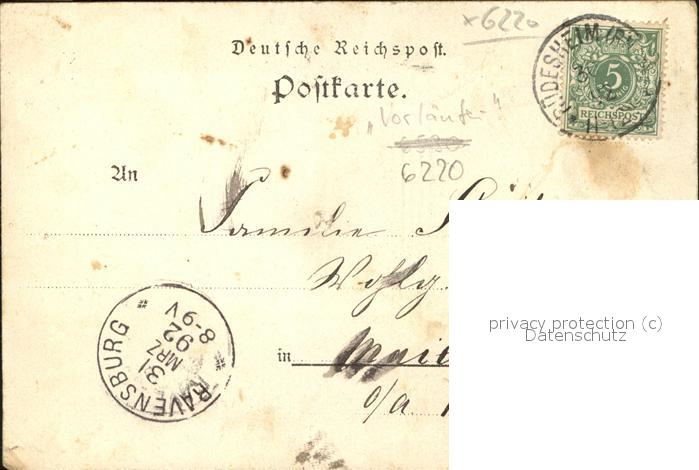 x 6220
Deutsche Reichspost.
Postkarte.
RÜDESHEIM
5
PFENNIG
REICHSPOST
„Vorläufer"
6220
An
Familie
Wohlg.
in
RAVENSBURG
31
MRZ
92
8-9V
privacy protection (c)
Datenschutz